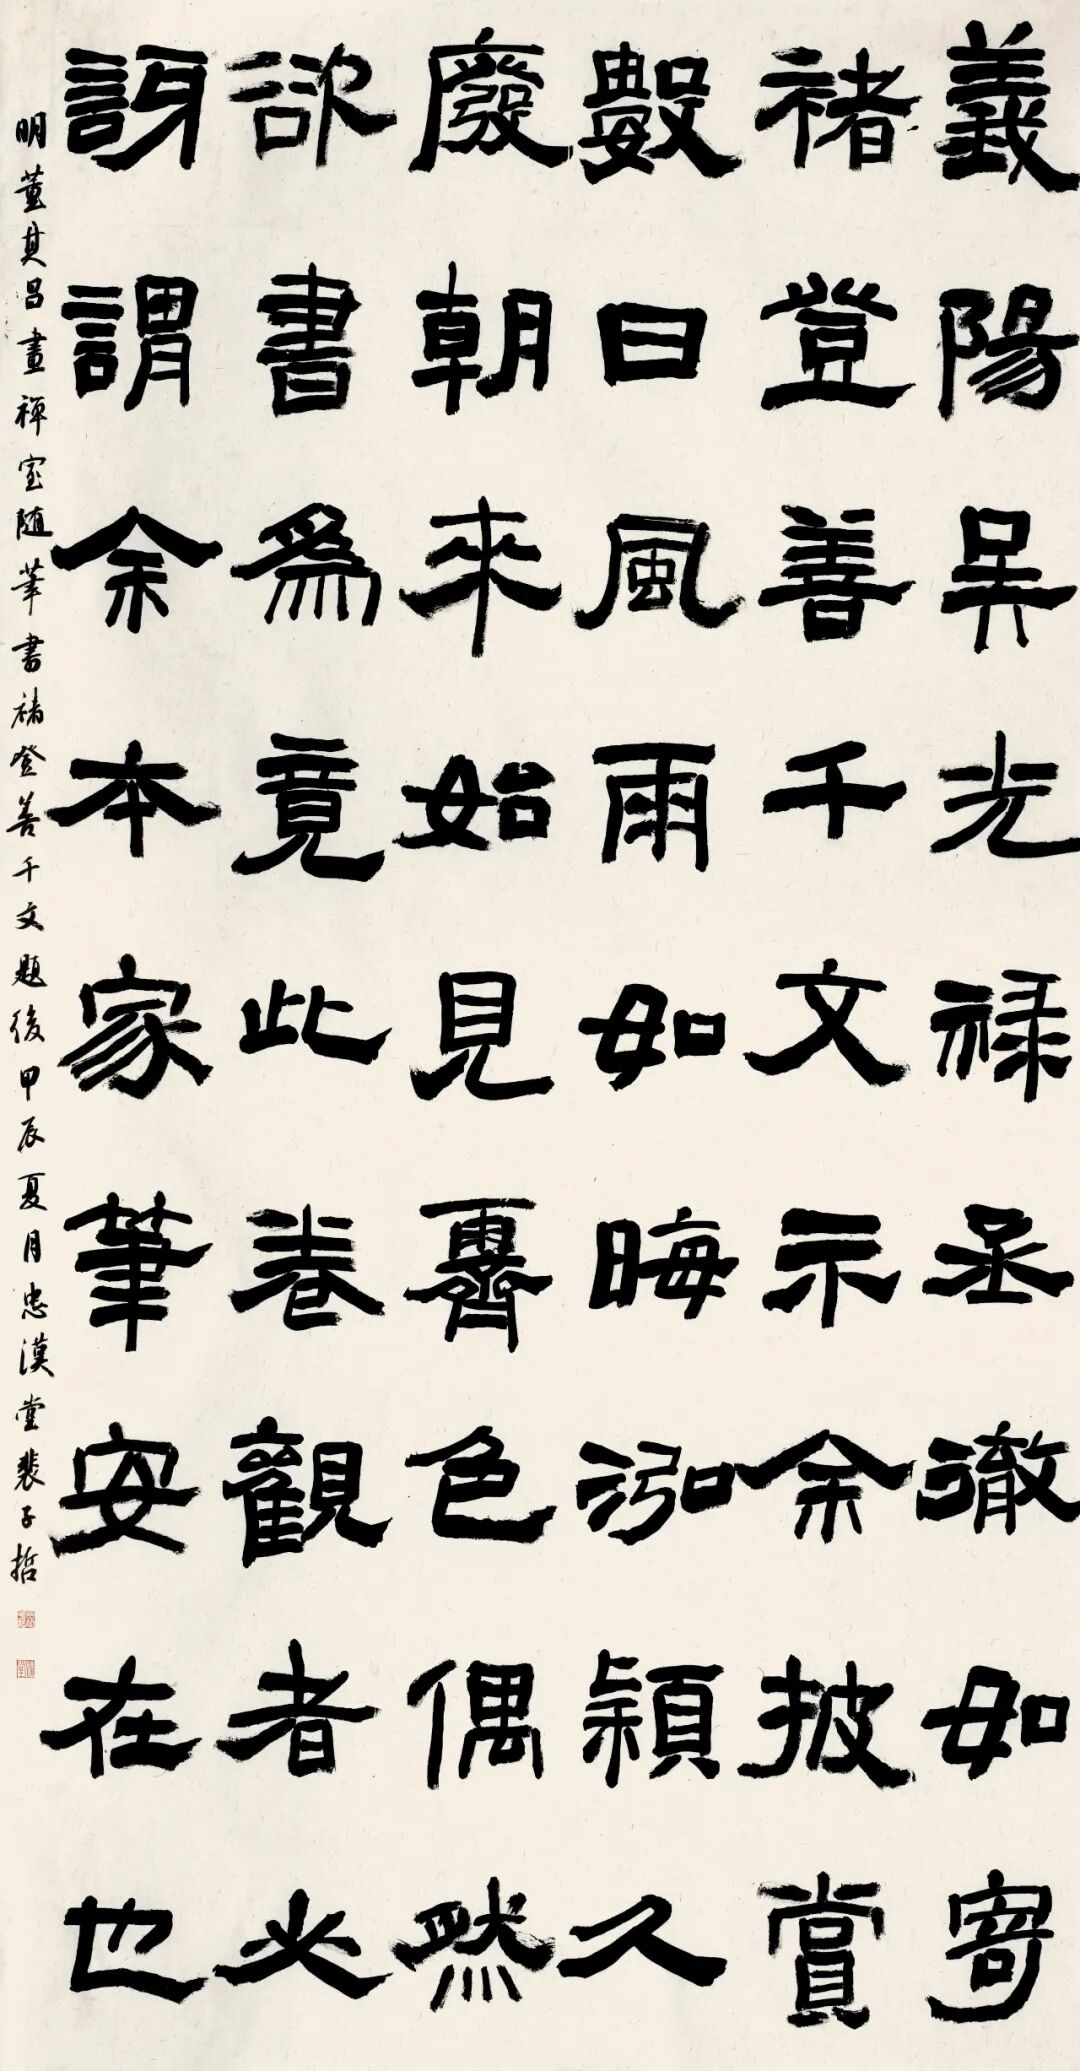 義陽吳光祿丞澈如寄
褚登善千文示余披賞
數日風雨如晦泓穎久
廢朝來始見霽色偶然
欲書為竟此卷觀者必
訝謂余本家筆安在也
明董其昌畫禪室隨筆書褚登善千文題後甲辰夏月忠漠堂裴子哲